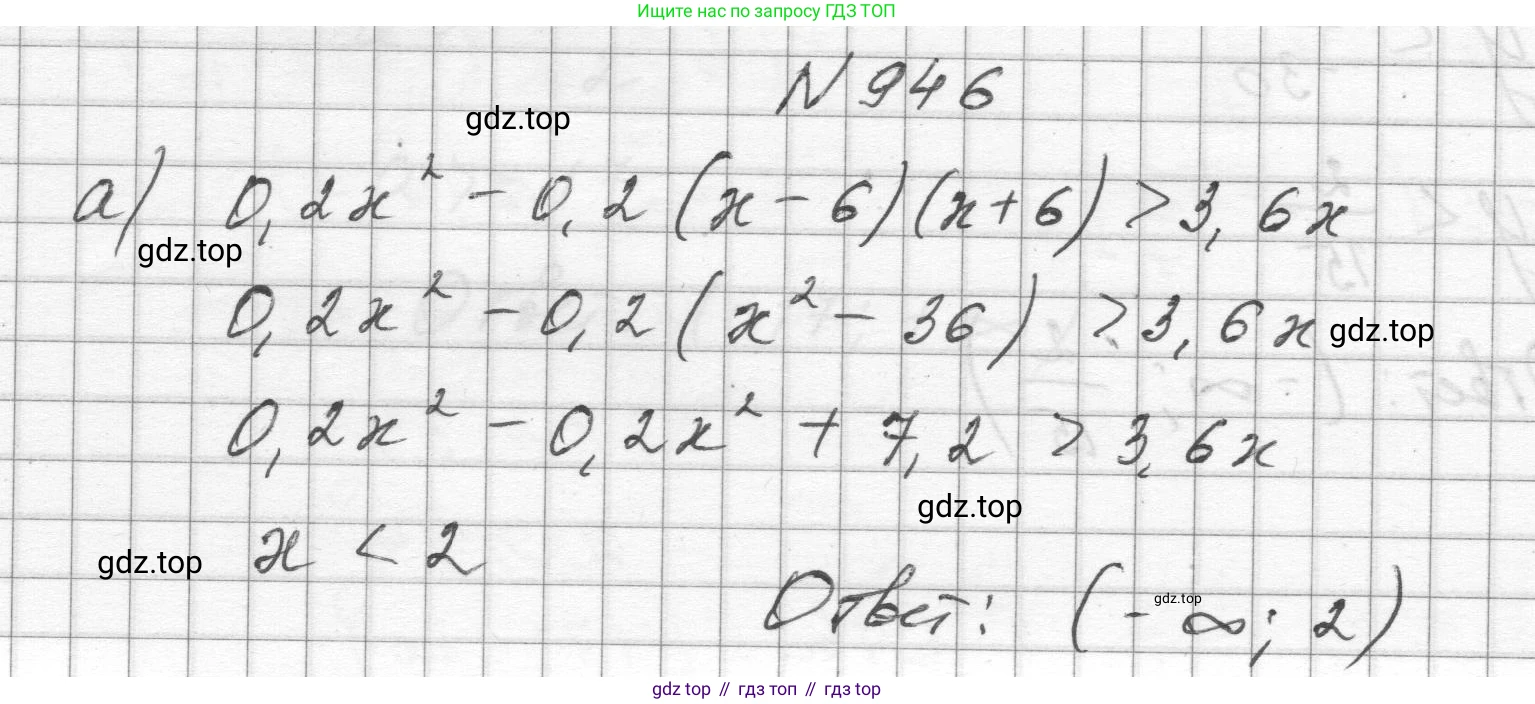 Ищите нас по запросу ГДЗ ТОП
N 946
gdz.top
а) 0,2x² - 0,2 (x - 6)(x + 6) > 3,6x
gdz.top
0,2x² - 0,2 (x² - 36) > 3,6x gdz.top
0,2x² - 0,2x² + 7,2 > 3,6x
gdz.top
gdz.top x < 2
Ответ: (-∞; 2)
gdz.top
gdz top // гдз топ // гдз top